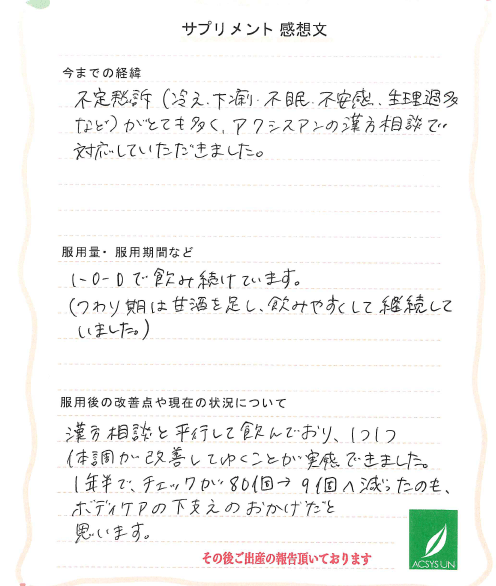 サプリメント 感想文
今までの経緯
不定愁訴(冷え、下痢・不眠、不安感、生理過多
など)がとても多く、アクシスアンの漢方相談で
対応していただきました。
服用量・服用期間など
1-0-0で飲み続けています。
(つわり期は甘酒を足し、飲みやすくして継続して
いました。)
服用後の改善点や現在の状況について
漢方相談と平行して飲んでおり、1つ1つ
体調が改善してゆくことが実感できました。
1年半で、チェックが80個→9個へ減ったのも、
ボディケアの下支えのおかげだと
思います。
その後ご出産の報告頂いております
ACSYS UN